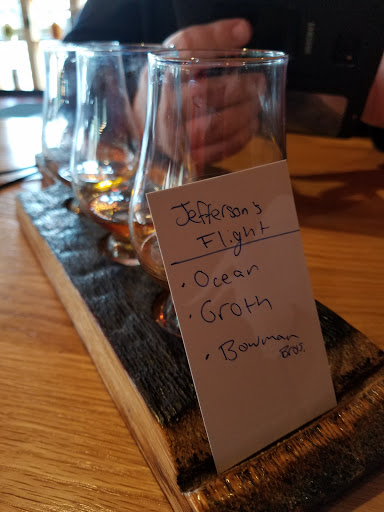 Jefferson's
Flight
• Ocean
• Groth
• Bowman
Bros.